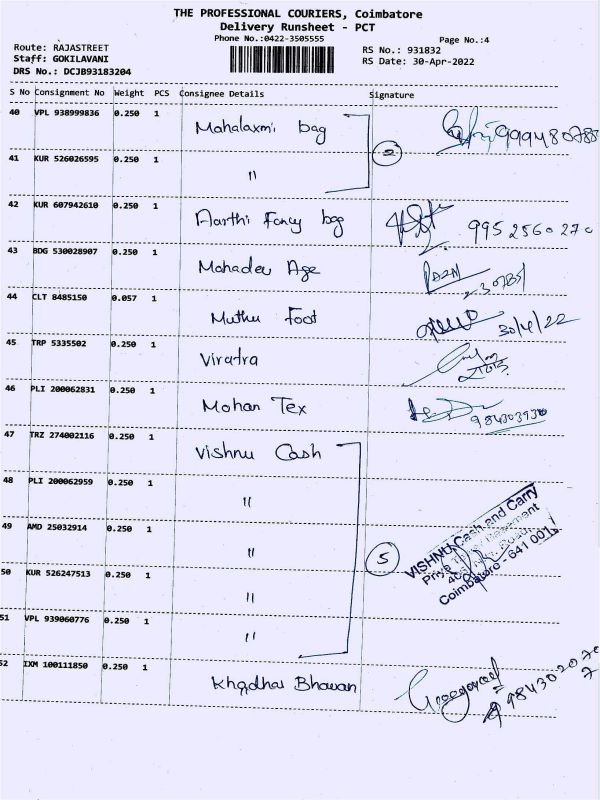 THE PROFESSIONAL COURIERS, Coimbatore
Delivery Runsheet - PCT
Phone No.:0422-3505555
Page No.:4
Route: RAJASTREET
RS No.: 931832
Staff: GOKILAVANI
RS Date: 30-Apr-2022
DRS No.: DCJB93183204
S No Consignment No Weight PCS Consignee Details Signature
40 VPL 938999836 0.250 1 Mahalaxmi bag
41 KUR 526026595 0.250 1 "
2
42 KUR 607942610 0.250 1 Aarthi Fancy bag 995 2560 270
43 BDG 530028907 0.250 1 Mahadev Age
44 CLT 8485150 0.057 1 Muthu Foot 30/4/22
45 TRP 5335502 0.250 1
46 PLI 200062831 0.250 1 Mohan Tex
47 TRZ 274002116 0.250 1 Vishnu Cash
48 PLI 200062959 0.250 1 "
49 AMD 25032914 0.250 1 "
5
VISHNU Cash and Carry
Coimbatore - 641 001
50 KUR 526247513 0.250 1 "
51 VPL 939060776 0.250 1 "
52 IXM 100111850 0.250 1 Khadhar Bhavan